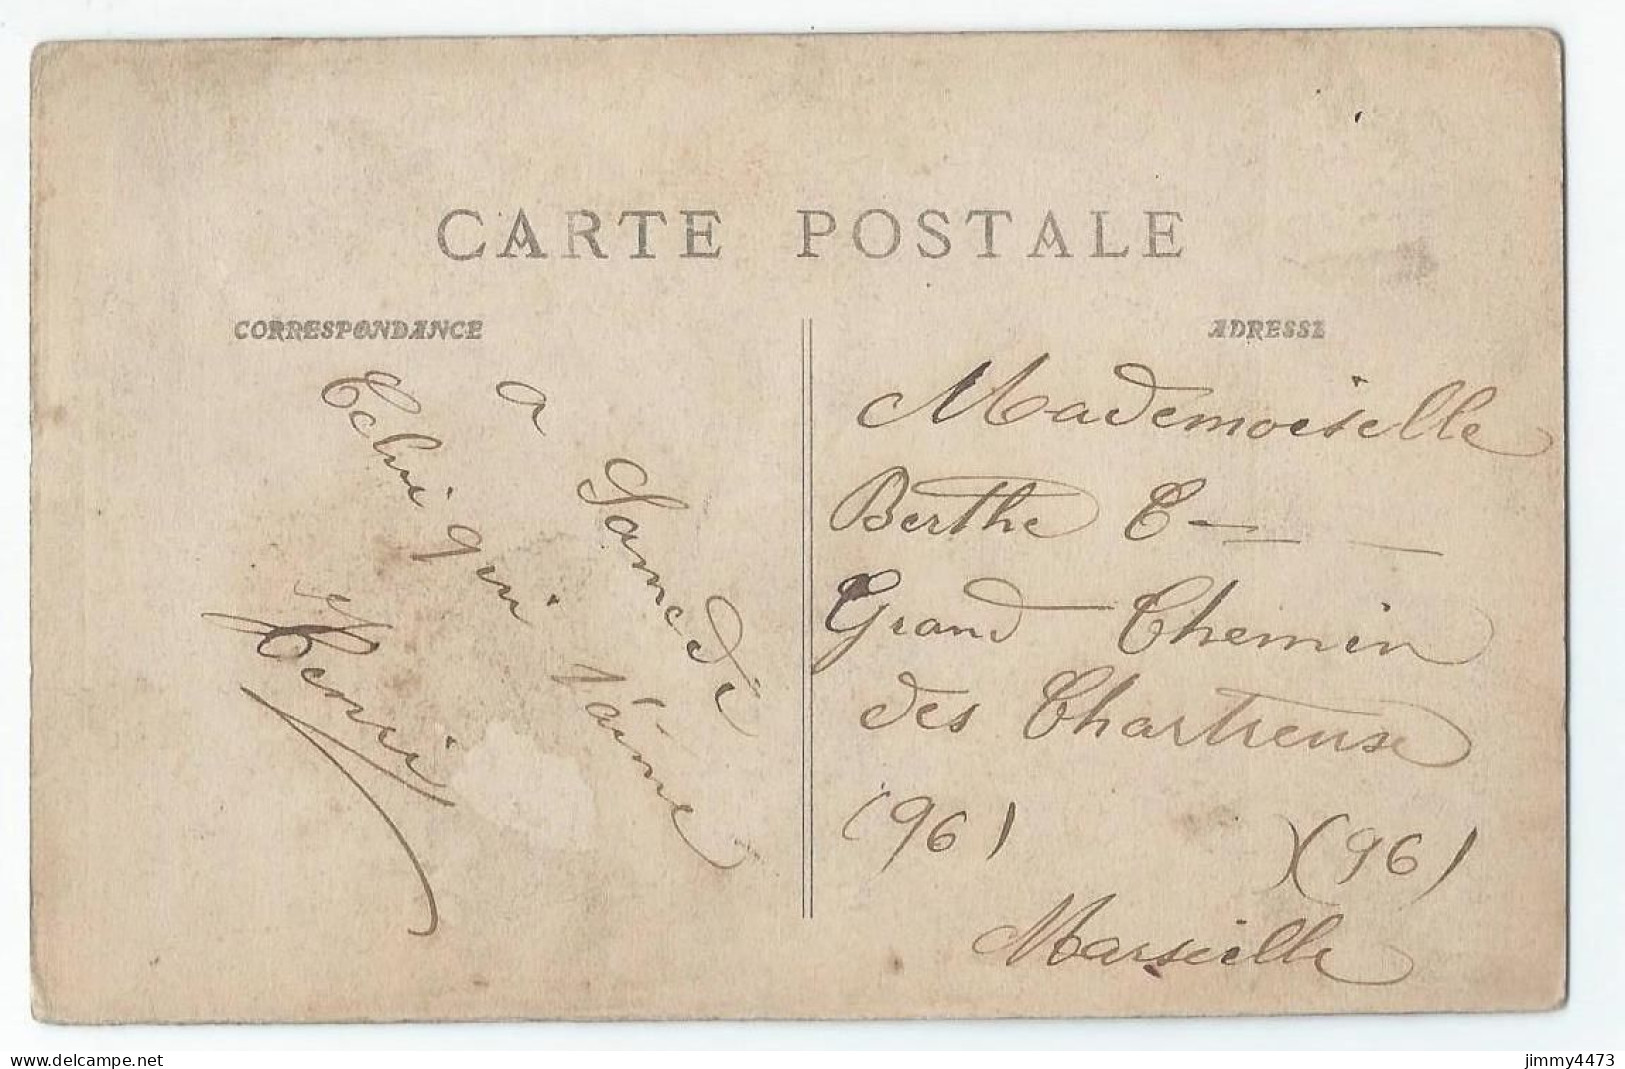 CARTE POSTALE
CORRESPONDANCE
ADRESSE
a Samedi
Celui qui t'aime
Henri
Mademoiselle
Berthe C
Grand Chemin
des Chartreuse
(96) (96)
Marseille
delcampe.net
jimmy4473